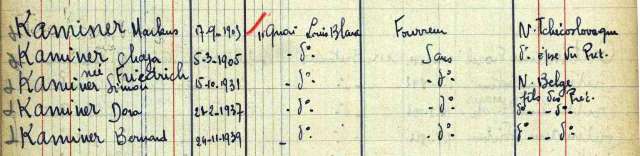 Kaminer Markus 17-9-1903 11 Quai Louis Blanc Fourreur N. Tchécoslovaque
Kaminer Chaja 5-3-1905 - d° - Sans d° épse du Prét.
née Friedrich
Kaminer Simon 15-10-1931 - d° - - d° - N. Belge
fils du Prét.
Kaminer Dora 21-2-1937 - d° - - d° - d° - d° -
Kaminer Bernard 24-11-1939 - d° - - d° - d° - d° -